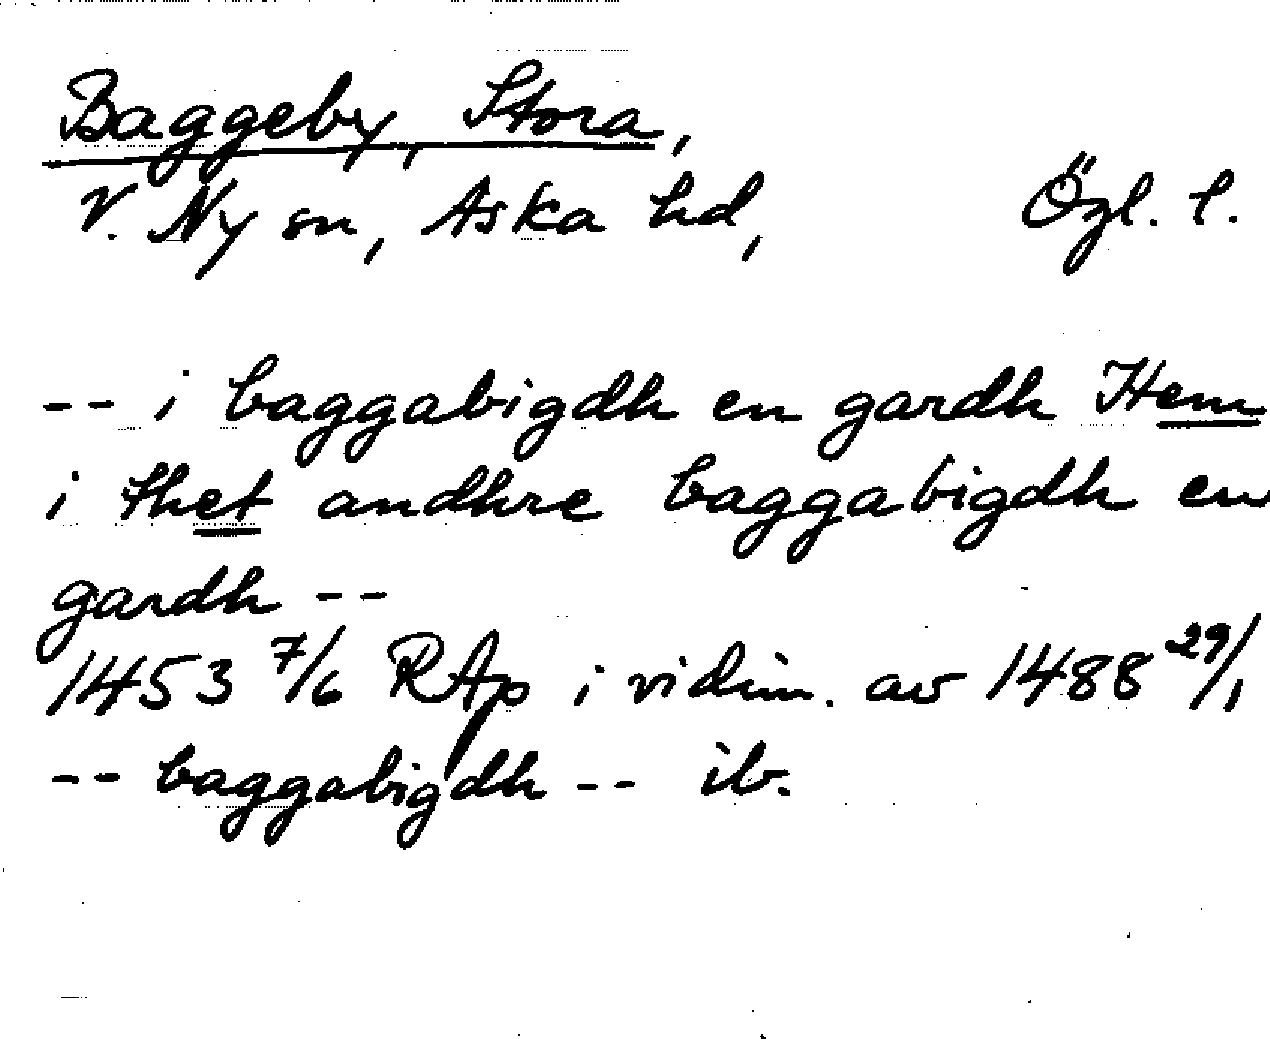 Baggeby, Stora,
V. Ny sn, Aska hd, Ögl. l.
-- i baggabigdh en gardh Hem
i thet andhre baggabigdh en
gardh --
1453 7/6 RAp i vidim. av 1488 29/1
-- baggabigdh -- ib.